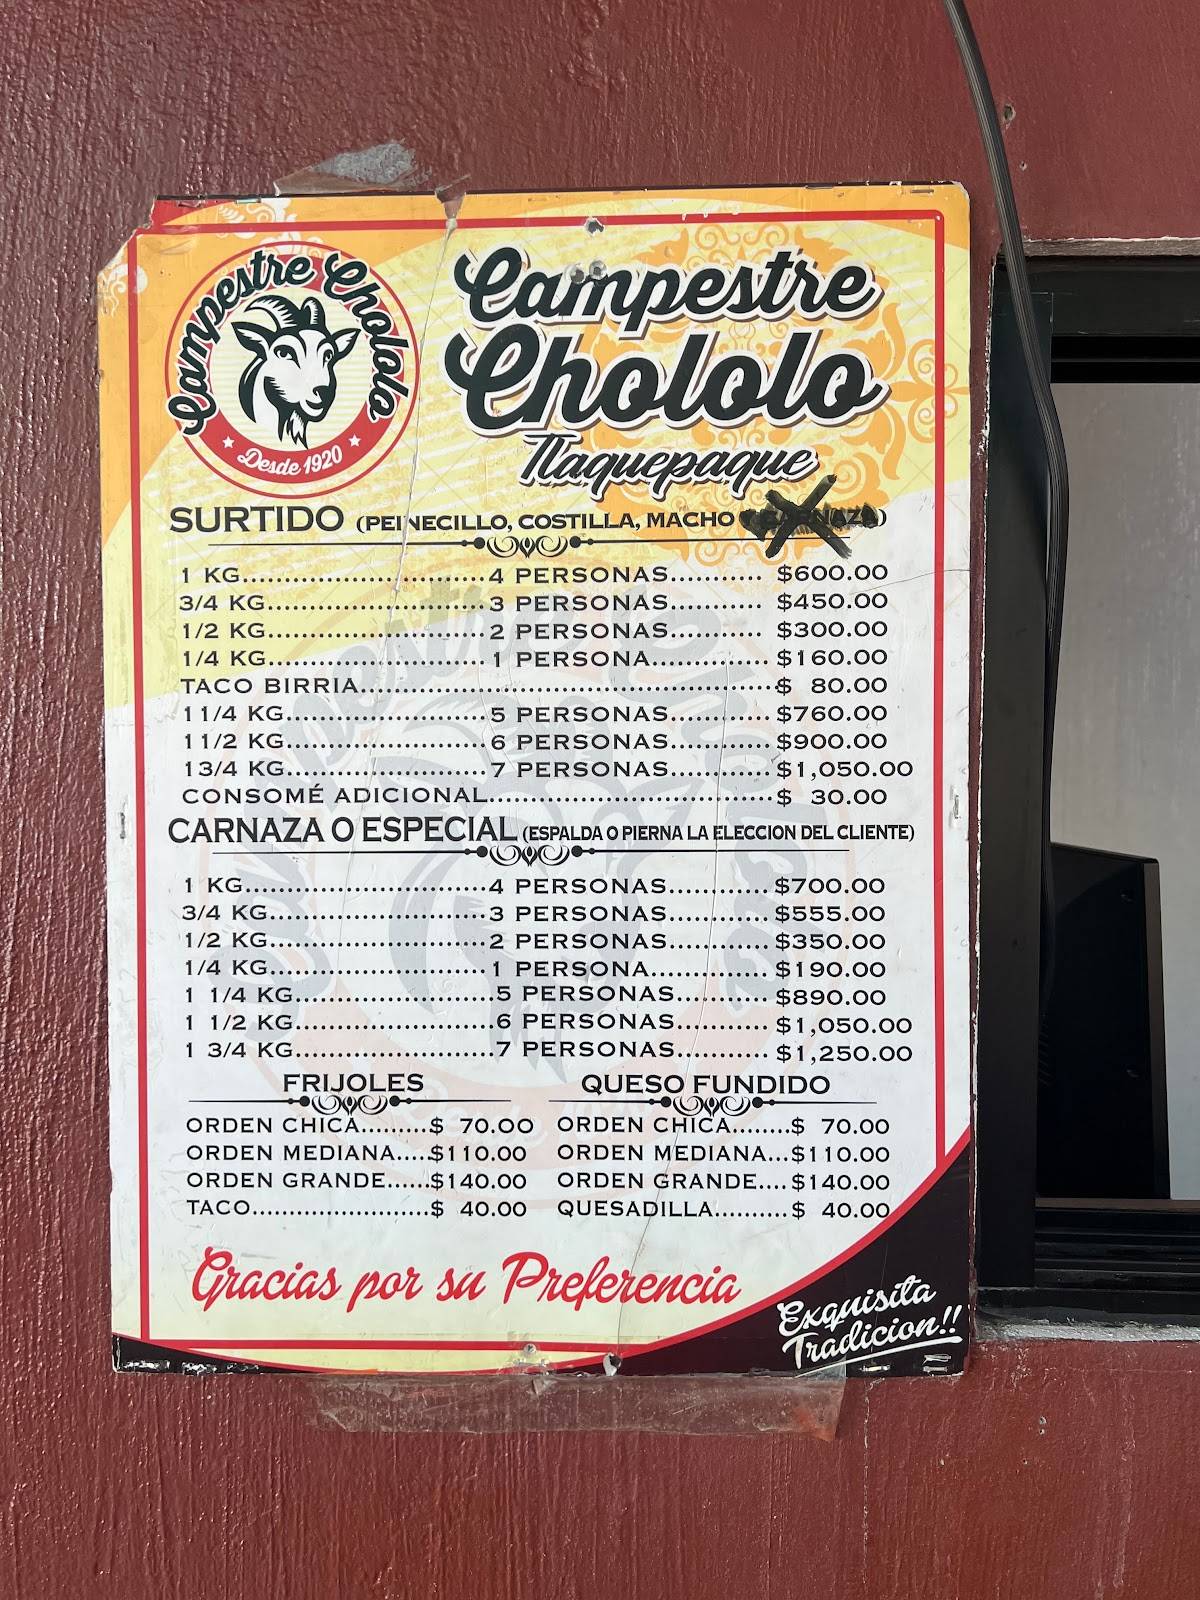 Campestre Chololo
Desde 1920
Campestre
Chololo
Tlaquepaque
SURTIDO (PEINECILLO, COSTILLA, MACHO
1 KG............................4 PERSONAS........... $600.00
3/4 KG..........................3 PERSONAS........... $450.00
1/2 KG..........................2 PERSONAS........... $300.00
1/4 KG..........................1 PERSONA.............. $160.00
TACO BIRRIA..................................................$ 80.00
1 1/4 KG........................5 PERSONAS............ $760.00
1 1/2 KG........................6 PERSONAS............ $900.00
1 3/4 KG........................7 PERSONAS............ $1,050.00
CONSOMÉ ADICIONAL..................................$ 30.00
CARNAZA O ESPECIAL (ESPALDA O PIERNA LA ELECCION DEL CLIENTE)
1 KG.............................4 PERSONAS............ $700.00
3/4 KG..........................3 PERSONAS............ $555.00
1/2 KG..........................2 PERSONAS............ $350.00
1/4 KG..........................1 PERSONA.............. $190.00
1 1/4 KG........................5 PERSONAS........... $890.00
1 1/2 KG........................6 PERSONAS........... $1,050.00
1 3/4 KG........................7 PERSONAS........... $1,250.00
FRIJOLES
ORDEN CHICA.........$ 70.00
ORDEN MEDIANA.....$110.00
ORDEN GRANDE......$140.00
TACO.......................$ 40.00
QUESO FUNDIDO
ORDEN CHICA........$ 70.00
ORDEN MEDIANA...$110.00
ORDEN GRANDE....$140.00
QUESADILLA..........$ 40.00
Gracias por su Preferencia
Exquisita
Tradicion!!